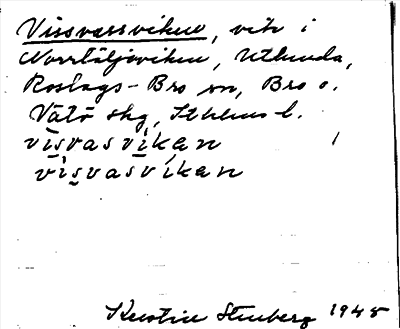 Vissvassviken, vik i
Norrtäljeviken, Utlunda,
Roslags-Bro sn, Bro o.
Vätö skg, Sthlms l.
visvasvikan
visvasvikan
Kerstin Stenberg 1945